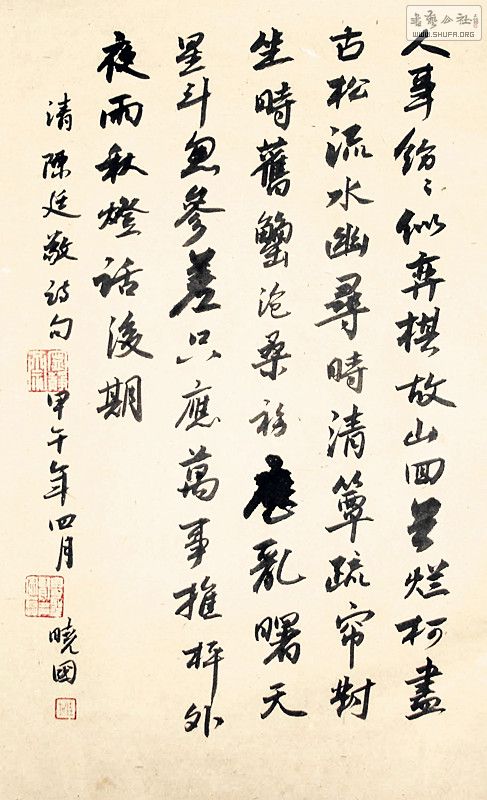 人事紛〻似弈棋故山回首烂柯盡
古松流水幽尋時清簟疏帘對
坐時舊壘沧桑初歷亂曙天
星斗忽參差只應萬事推枰外
夜雨秋燈話後期
清陳廷敬詩句 甲午年四月 曉國
書藝公社
WWW.SHUFA.ORG